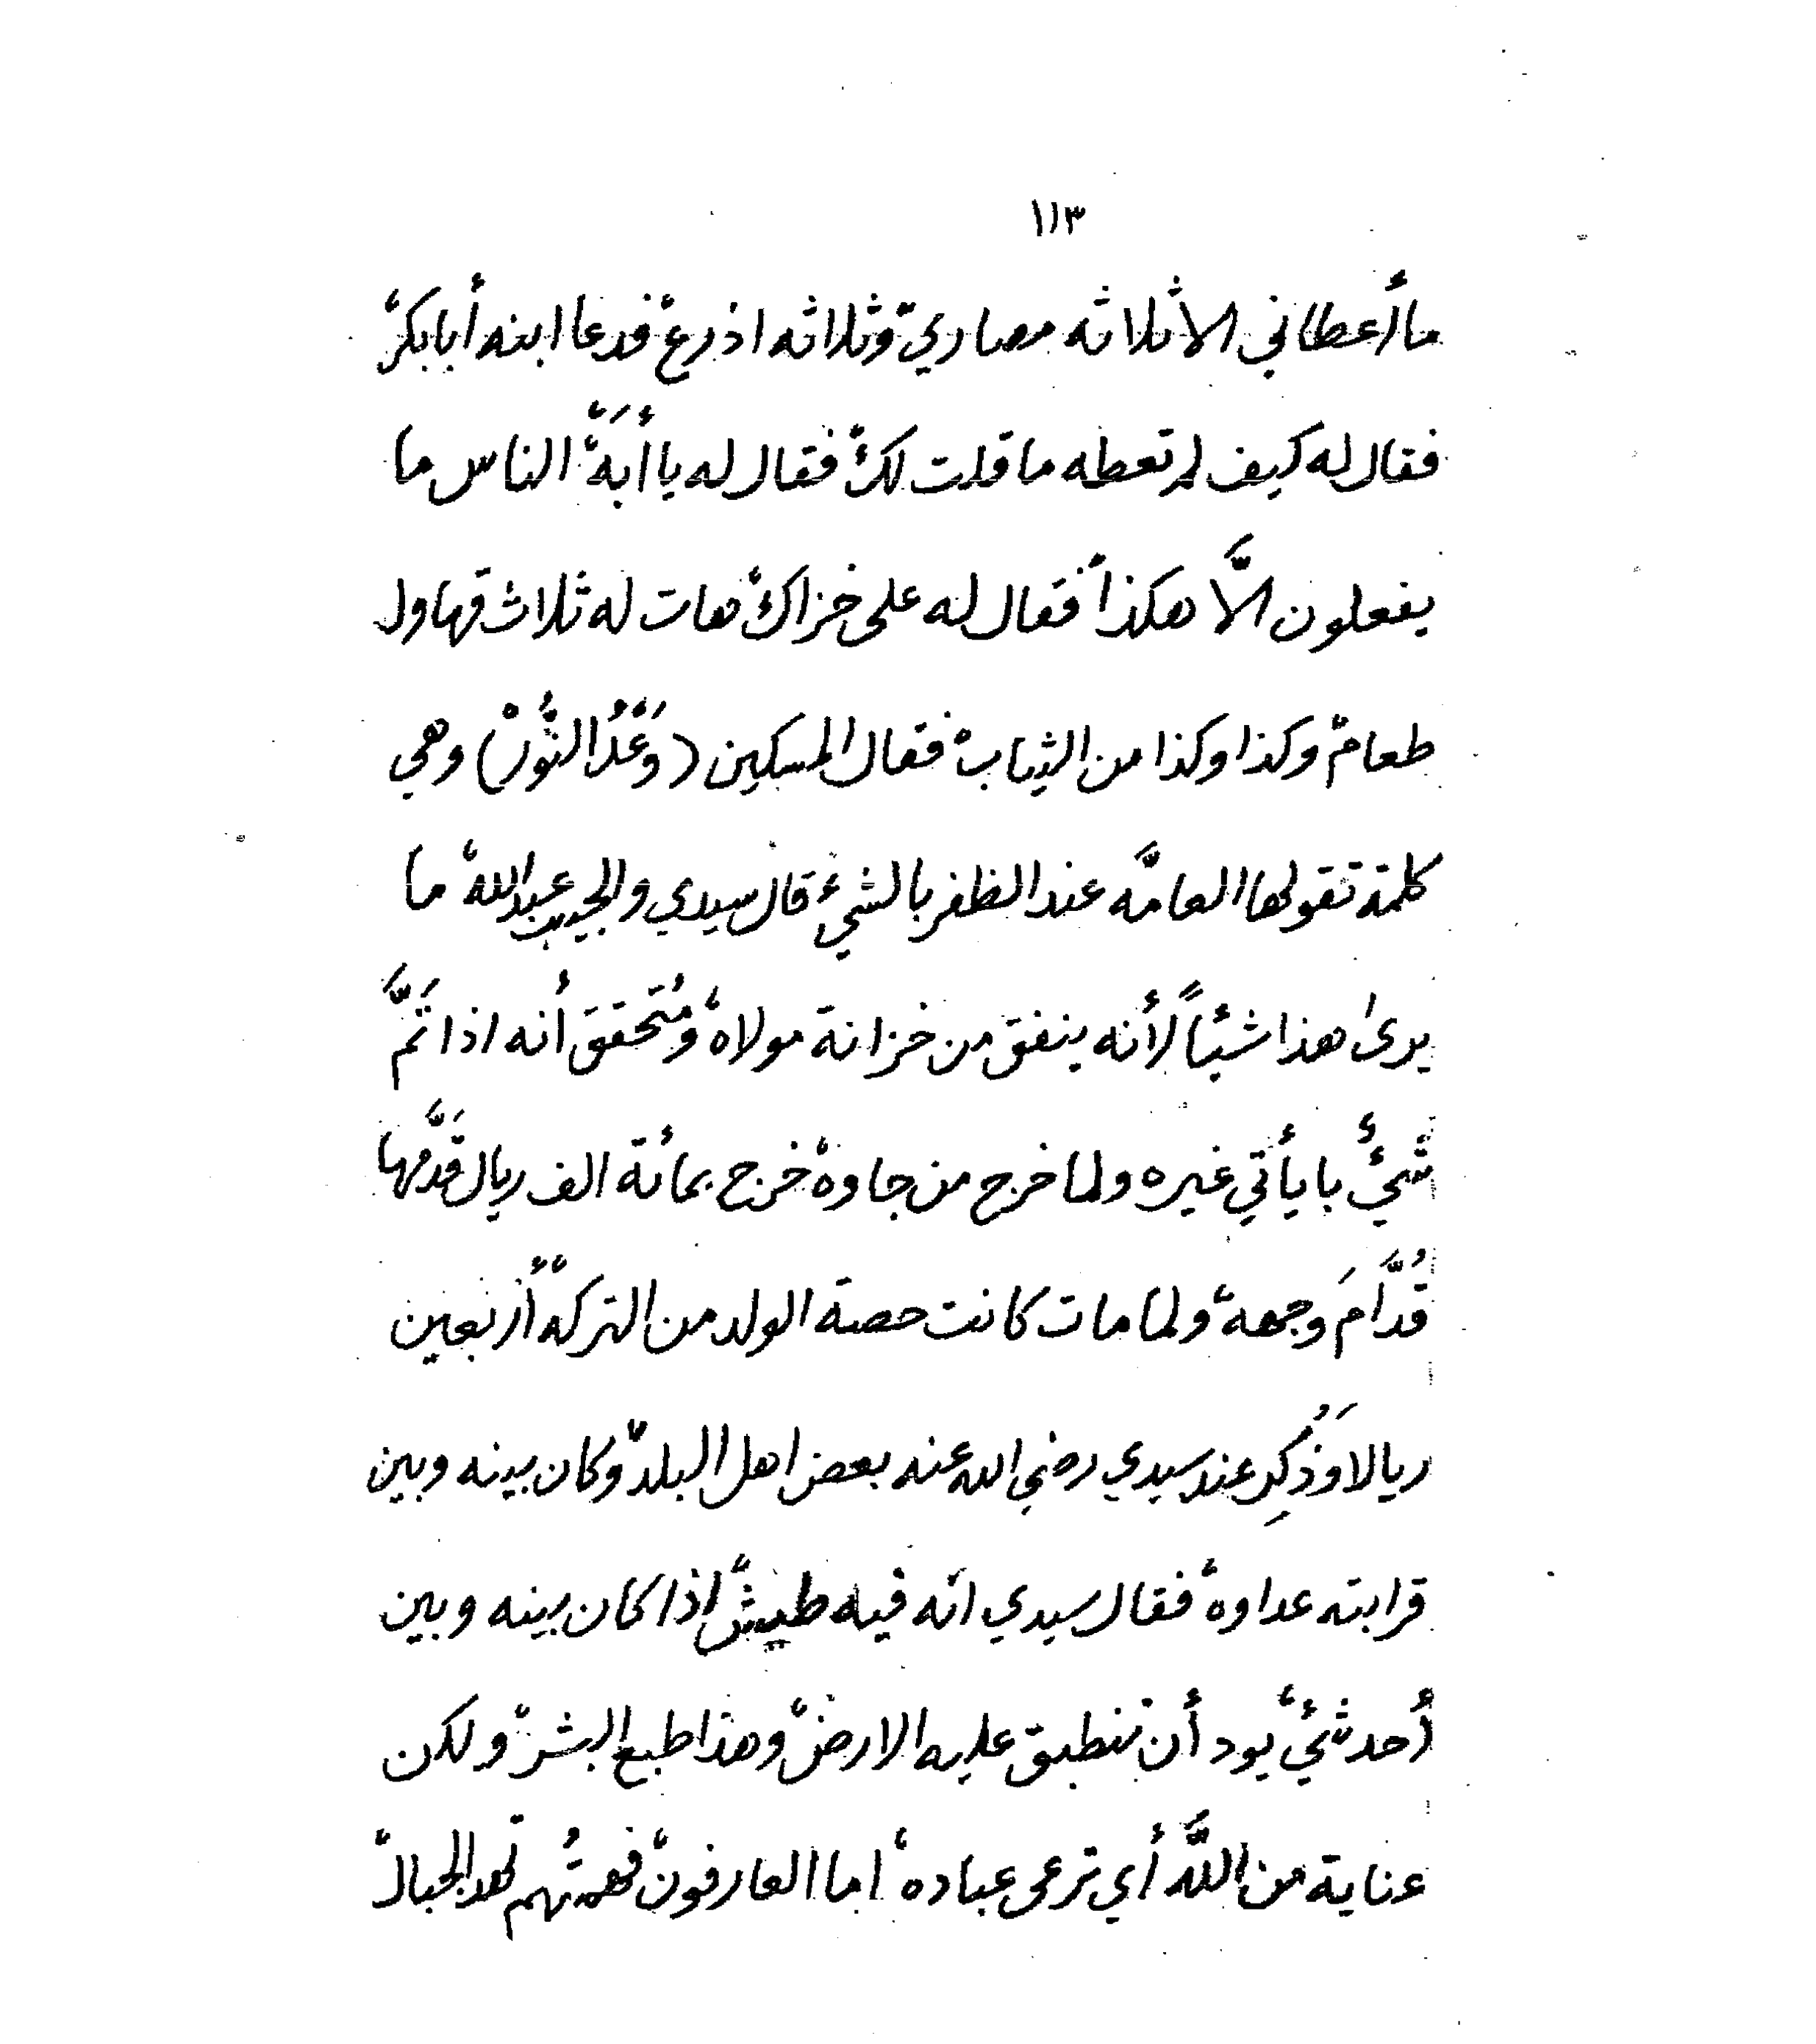 ١١٣
ما أعطاني الا ثلاثه مصاري، وثلاثه اذرع، فدعا ابنه أبابكر،
فقال له كيف لم تعطه ما قلت لك، فقال له يا أبَهْ، الناس ما
يفعلون الَّا هكذا، فقال له على خزاك، هات له ثلاث قهاول
طعام، وكذا وكذا من الثياب، فقال المسكين (وَعْدُ النُّوْر) وهي
كلمة تقولها العامَّه عند الظفر بالشيء، قال سيدي والحبيب عبدالله، ما
يرى هذا شيئاً لأنه ينفق من خزانة مولاه، ومُتحقق أنه اذا تَمَّ
شيْئ، با يأتي غيره ولما خرج من جاوة، خرج بمائة الف ريال قَدَّمها
قُدَّامَ وجهه، ولما مات كانت حصة الولد من التركة، أربعين
ريالا، وَذُكِر عند سيدي رضي الله عنه بعض اهل البلد، وكان بينه وبين
قرابته عداوة، فقال سيدي انه فيه طيش، اذا كان بينه وبين
أحد شيئ، يود أن تنطبق عليه الارض، وهذا طبع البشر، ولكن
عناية من اللَّه أي ترعى عباده، اما العارفون، فهمتُهم تهد الجبال،